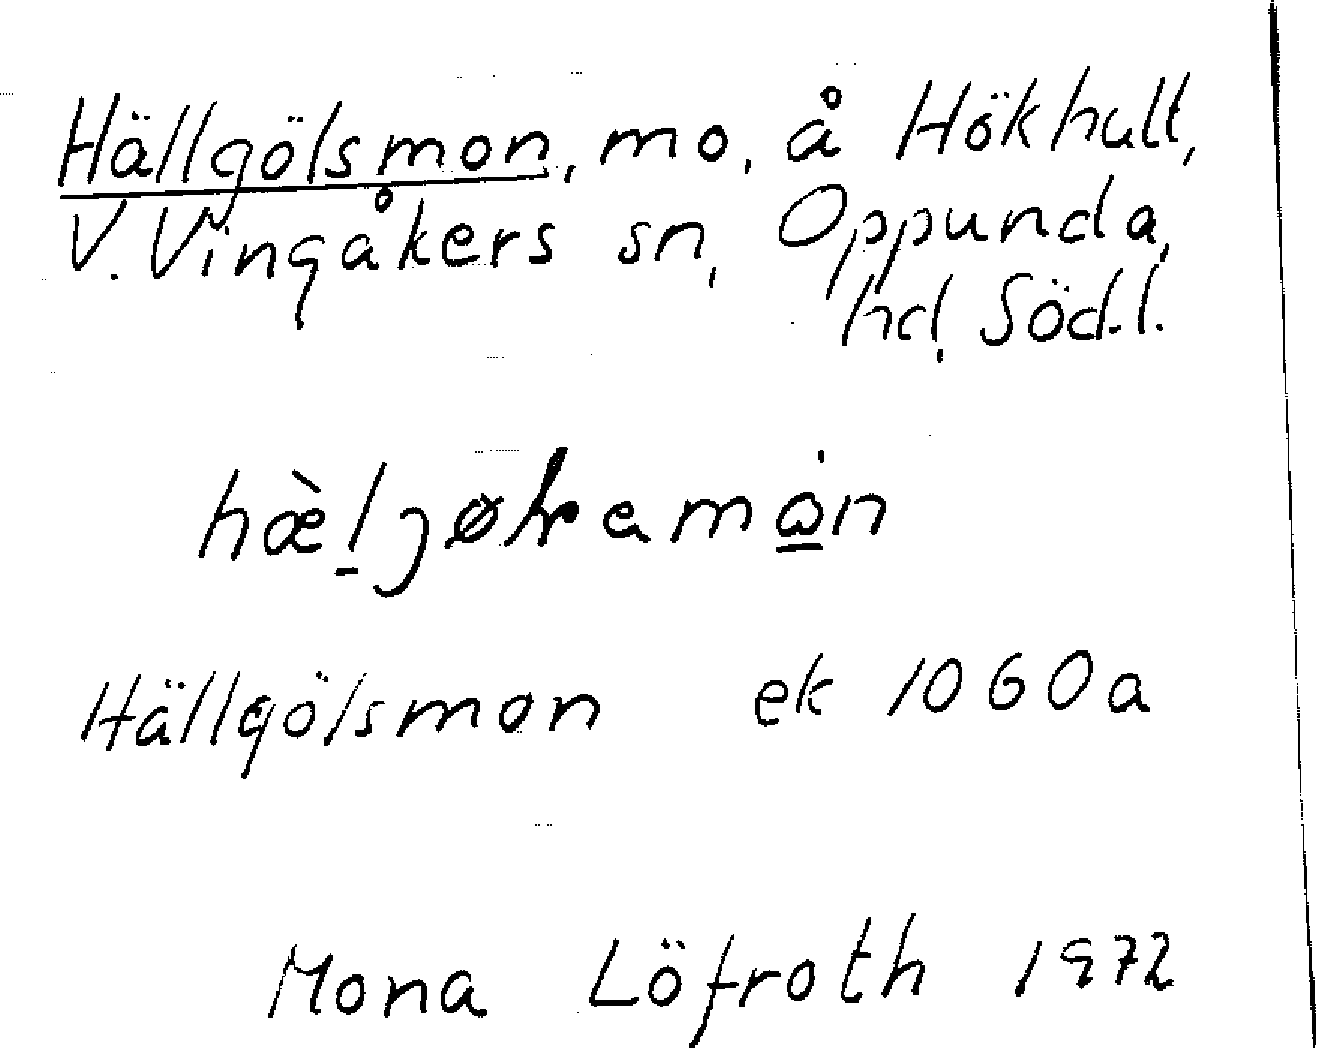 Hällgölsmon, mo, å Hökhult,
V. Vingåkers sn, Oppunda,
hd, Söd.l.
Hällgölsmon ek 1060a
Mona Löfroth 1972